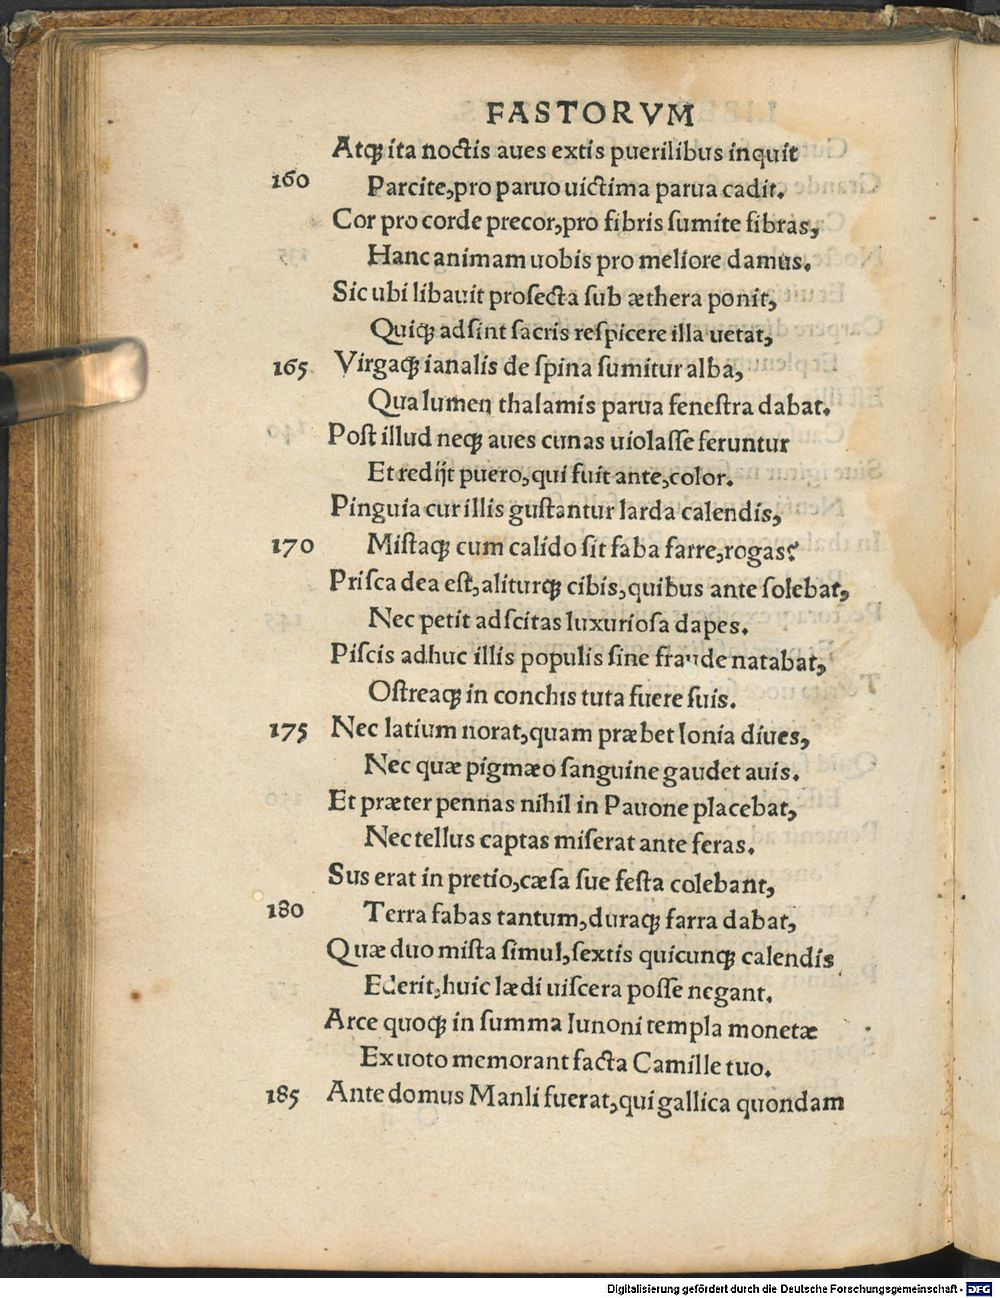 FASTORVM
Atq; ita noctis aues extis puerilibus inquit
160 Parcite, pro paruo uictima parua cadit.
Cor pro corde precor, pro fibris ſumite fibras,
Hanc animam uobis pro meliore damus.
Sic ubi libauit proſecta ſub æthera ponit,
Quiq; adſint ſacris reſpicere illa uetat,
165 Virgaq; ianalis de ſpina ſumitur alba,
Qua lumen thalamis parua feneſtra dabat.
Poſt illud neq; aues cunas uiolaſſe feruntur
Et redijt puero, qui fuit ante, color.
Pinguia cur illis guſtantur larda calendis,
170 Miſtaq; cum calido ſit faba farre, rogas?
Priſca dea eſt, aliturq; cibis, quibus ante ſolebat,
Nec petit adſcitas luxurioſa dapes.
Piſcis adhuc illis populis ſine fraude natabat,
Oſtreaq; in conchis tuta fuere ſuis.
175 Nec latium norat, quam præbet Ionia diues,
Nec quæ pigmæo ſanguine gaudet auis.
Et præter pennas nihil in Pauone placebat,
Nec tellus captas miſerat ante feras.
Sus erat in pretio, cæſa ſue feſta colebant,
180 Terra fabas tantum, duraq; farra dabat,
Quæ duo miſta ſimul, ſextis quicunq; calendis
Ederit, huic lædi uiſcera poſſe negant.
Arce quoq; in ſumma Iunoni templa monetæ
Ex uoto memorant facta Camille tuo.
185 Ante domus Manli fuerat, qui gallica quondam
Digitalisierung gefördert durch die Deutsche Forschungsgemeinschaft - DFG